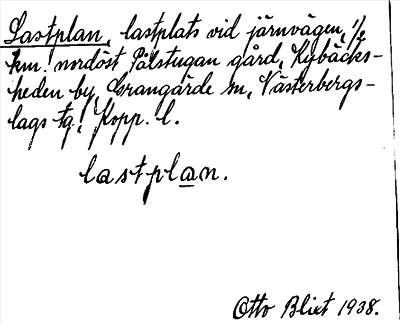 Lastplan, lastplats vid järnvägen, 1/2
km. nordöst Pålstugan gård, Nybäcks-
heden by, Grangärde sn, Västerbergs-
lags tg, Kopp. l.
lastplan.
Otto Blixt 1938.